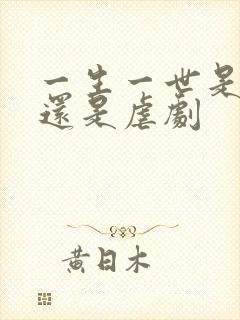 一生一世是
還是虐劇
黃日木